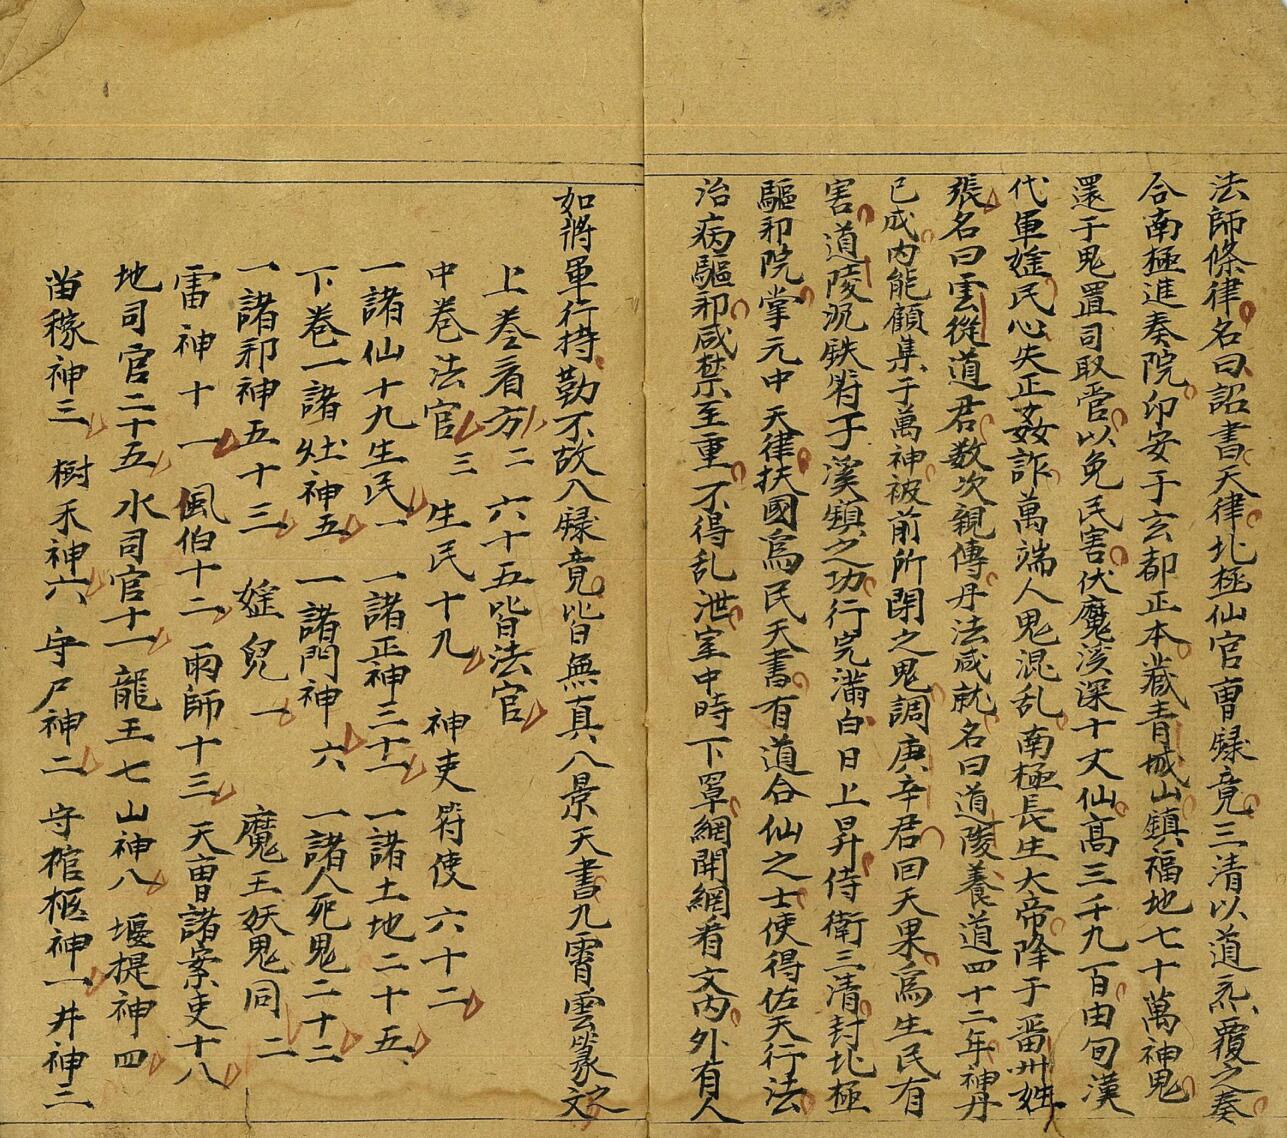 法師條律名曰詔書天律北極仙官曺録竟三清以道炁覆之奏
合南極進奏院印安于玄都正本藏青城山鎮福地七十萬神鬼
還于鬼置司取管以免民害伏魔溪深十丈仙高三千九百由旬漢
代軍婬民心失正姦詐萬端人鬼混乱南極長生大帝降于畨州姓
張名曰雲從道君数次親傳丹法咸就名曰道陵養道四十二年神丹
已成内能顧集于萬神被前所閉之鬼調庚辛君回天果為生民有
害道陵沉鉄符于溪鎮之功行完滿白日上昇侍衛三清封北極
驅邪院掌元中天律扶國為民天書有道合仙之士使得佐天行法
治病驅邪咸禁至重不得乱泄室中時下罩網開網看文内外有人
如將軍行持勒不故入録竟皆無真八景天書九霄雲篆文
上卷看方二 六十五皆法官
中卷法官三 生民十九 神吏符使六十二
一諸仙十九生民一 一諸正神三十一 一諸土地二十五
下卷一諸灶神五 一諸門神六 一諸人死鬼二十二
一諸邪神五十三 婬兒一 魔王妖鬼同二
雷神十一 風伯十二 雨師十三 天曺諸案吏十八
地司官二十五 水司官十一 龍王七 山神八 堰提神四
苗稼神三 樹禾神六 守尸神二 守棺柩神一 井神二